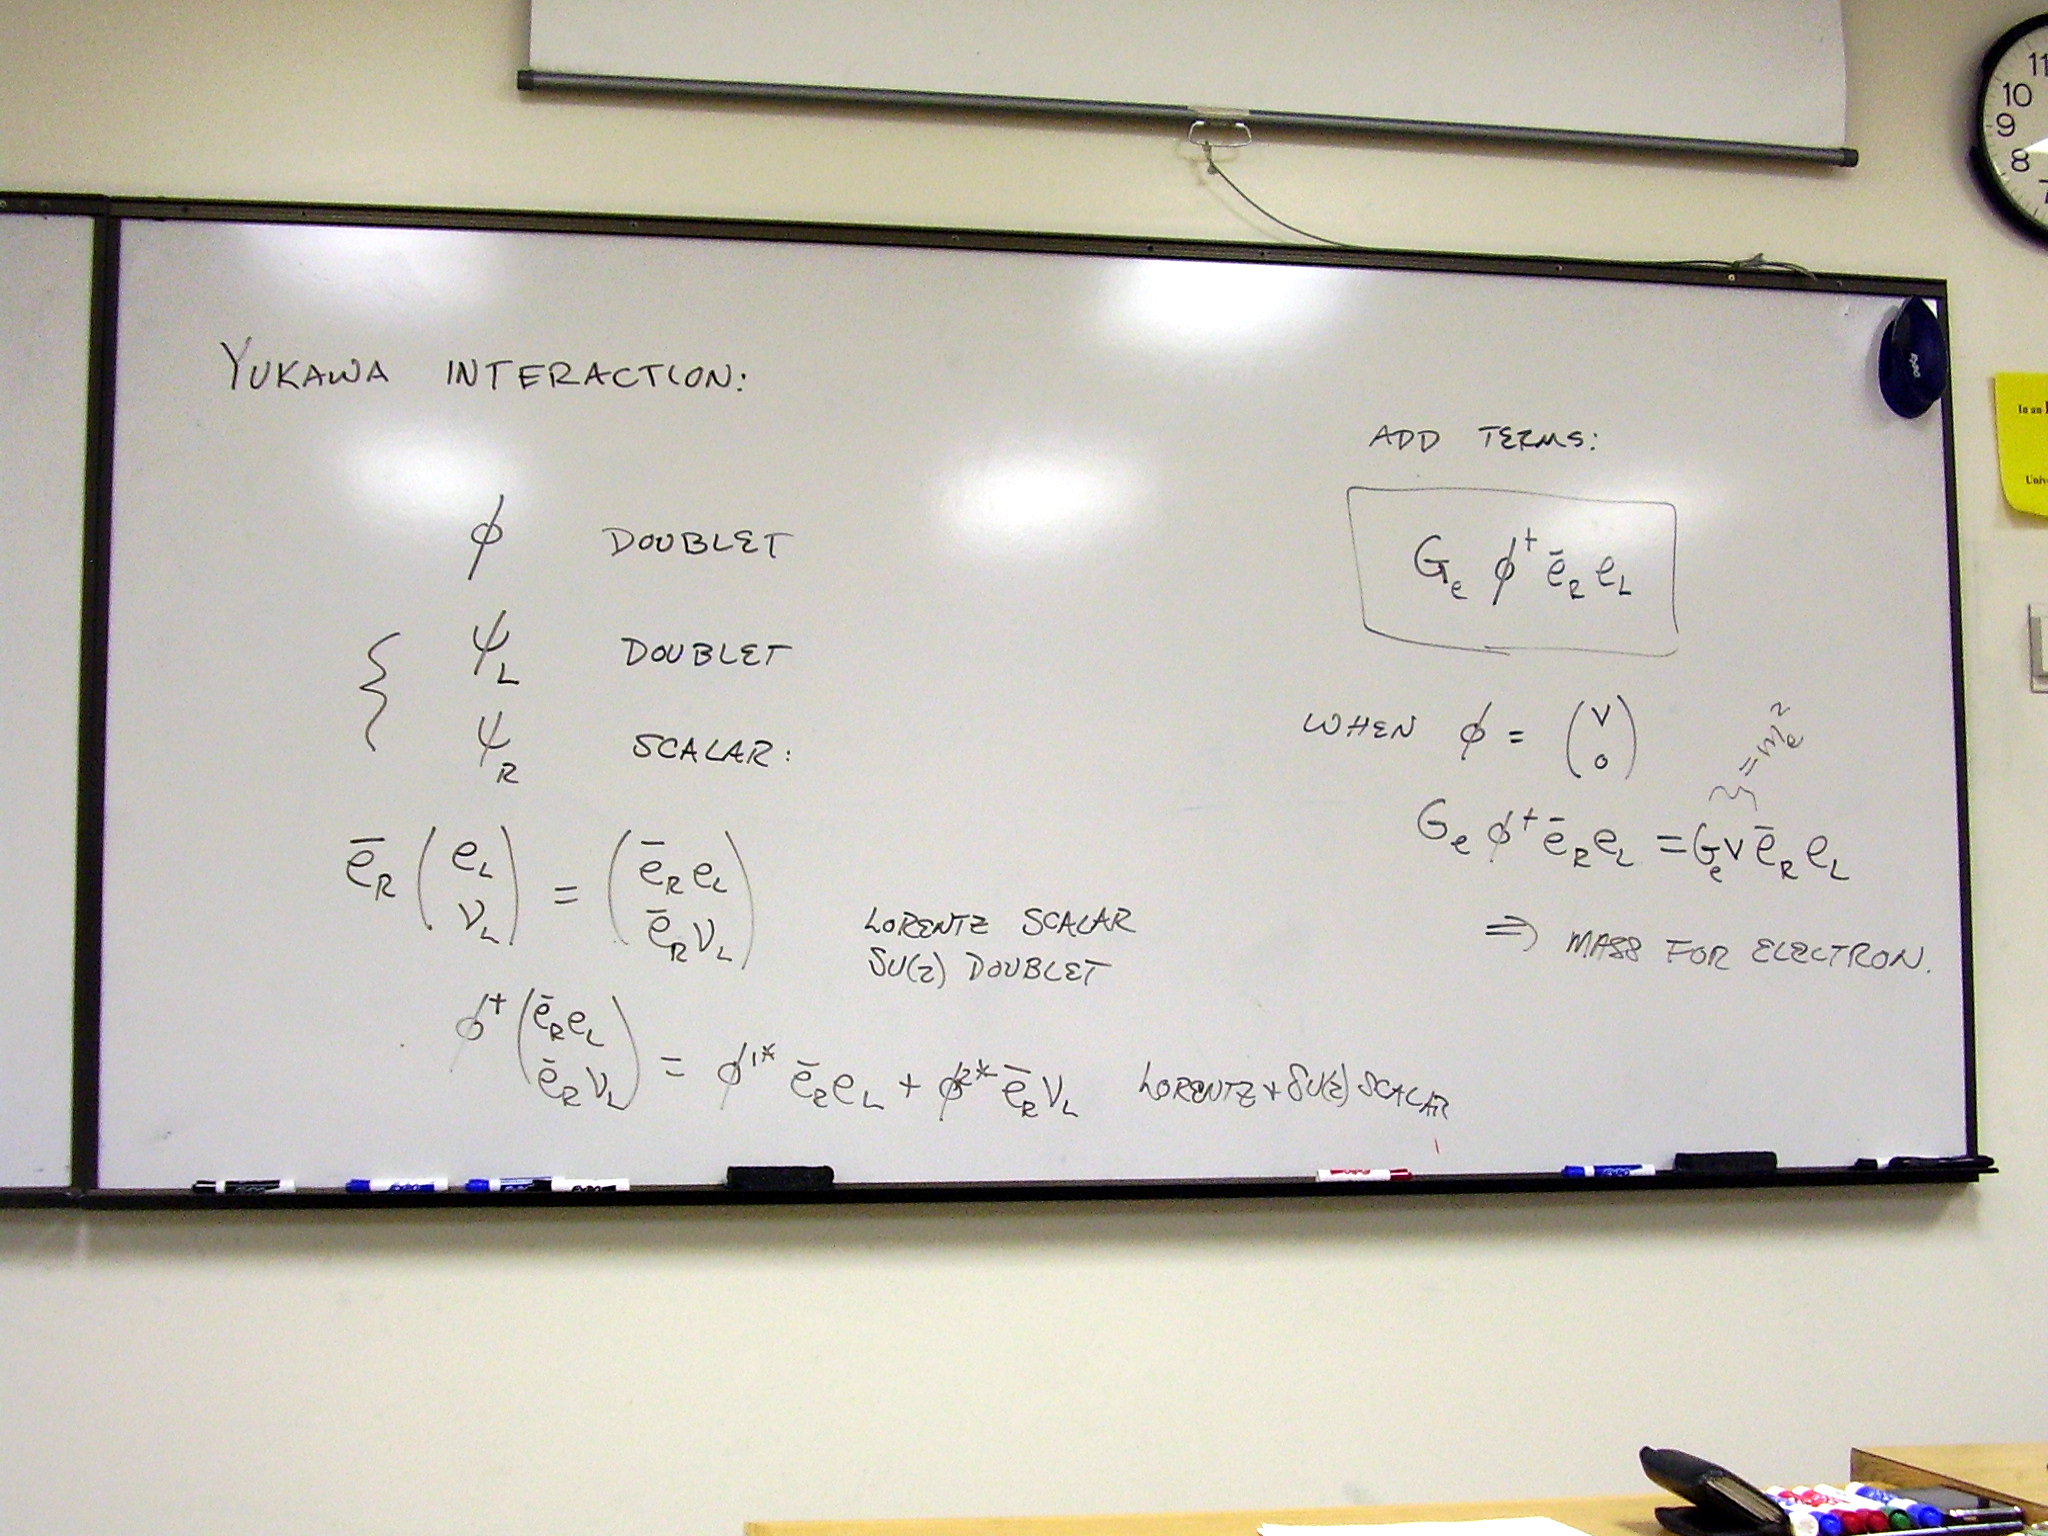 YUKAWA INTERACTION:
ϕ DOUBLET
ψ_L DOUBLET
ψ_R SCALAR:
ē_R (e_L ν_L) = (ē_R e_L ē_R ν_L)
LORENTZ SCALAR
SU(2) DOUBLET
ϕ† (ē_R e_L ē_R ν_L) = ϕ^1* ē_R e_L + ϕ^2* ē_R ν_L LORENTZ + SU(2) SCALAR
ADD TERMS:
G_e ϕ† ē_R e_L
WHEN ϕ = (v 0)
= m_e^2
G_e ϕ† ē_R e_L = G_e v ē_R e_L
⇒ MASS FOR ELECTRON.
11
10
9
8
7
In an
Unive
EXPO